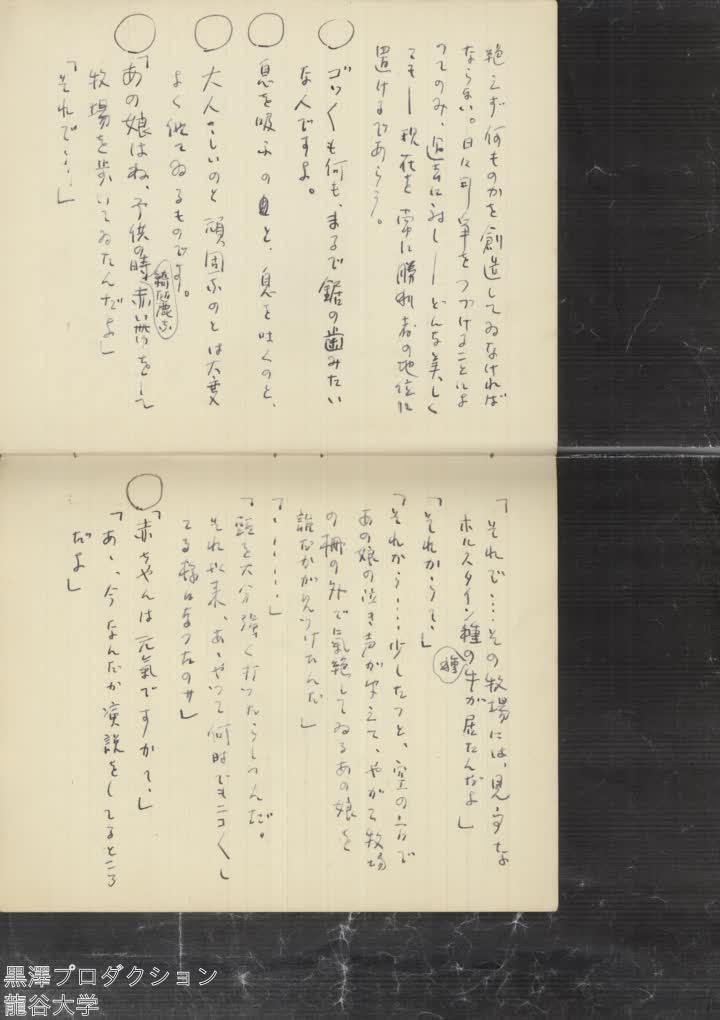 絶えず何ものかを創造してゐなければ
ならない。日に軍をつづけることによ
つてのみ、過去に対し一どんな美しく
ても一現在を常に勝れ者の地位に
置けるであらう。
○ ゴツくも何も、まるで鋸の歯みたい
な人ですよ。
○ 息を吸ふのと、息を吐くのと、
○ 大人しいのと頑固なのとは大変
よく似てゐるものです。
○ 「あの娘はね、子供の時、綺麗な赤い をして
牧場を歩いてゐたんだよ」
「それで‥‥」
「それで‥‥その牧場には、見事な
ホルスタイン種の牛が居たんだよ」
種
「それからつて、」
「それから‥‥少したつと、空の方で
あの娘の泣き声が聞えて、やがて牧場
の柵の外で氣絶してゐるあの娘を
誰かが見つけたんだ」
「‥‥‥」
「頭を大分強く打つたらしいんだ。
それ以来、あゝやつて何時でもニコ〱し
てる様になつたのサ」
○ 「赤ちやんは元氣ですかて、」
「あゝ、今なんだか演説をしてるところ
だよ」
黒澤プロダクション
龍谷大学